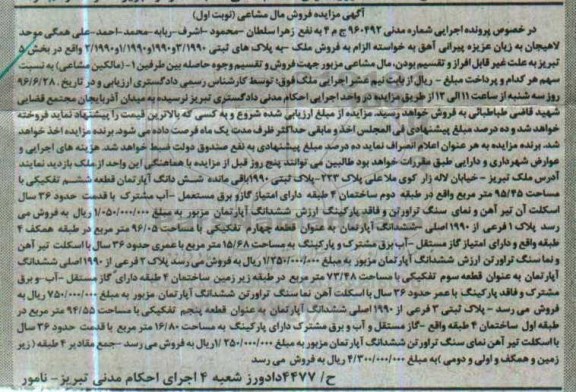 آگهی مزایده فروش مال مشاعی (نوبت اول)
در خصوص پرونده اجرایی شماره مدنی ۹۶۰۴۹۲ ج م ۴ به نفع زهرا سلطان -محمود -اشرف-ربابه -محمد-احمد-علی همگی موحد
لاهیجان به زیان عزیزه پیرانی آهق به خواسته الزام به فروش ملک -به پلاک های ثبتی ۳/۱۹۹۰و۱۹۹۰و۱/۱۹۹۰و۲/۱۹۹۰ واقع در بخش ۵
تبریز به علت غیر قابل افراز و تقسیم بودن، مال مشاعی مزبور جهت فروش و تقسیم وجوه حاصله بین طرفین ۱- (مالکین مشاعی) به نسبت
سهم هر کدام و پرداخت مبلغ - ریال از بابت نیم عشر اجرایی ملک فوق: توسط کارشناس رسمی دادگستری ارزیابی و در تاریخ ۹۶/۶/۲۸.
روز سه شنبه از ساعت ۱۱ الی ۱۲ از طریق مزایده در واحد اجرایی احکام مدنی دادگستری تبریز نرسیده به میدان آذربایجان مجتمع قضایی
شهید قاضی طباطبائی به فروش خواهد رسید. مزایده از مبلغ ارزیابی شده شروع و به کسی که بالاترین قیمت را پیشنهاد نماید فروخته
خواهد شد و ده درصد مبلغ پیشنهادی فی المجلس اخذ و مابقی حداکثر ظرف مدت یک ماه فرصت داده می شود. برنده مزایده اخذ خواهد
شد. برنده مزایده به هر عنوان اعلام انصراف نماید ده درصد مبلغ پیشنهادی به نفع صندوق دولت ضبط خواهد شد. هزینه های اجرایی و
عوارض شهرداری و دارایی طبق مقررات خواهد بود طالبین می توانند پنج روز قبل از مزایده با هماهنگی این واحد از ملک بازدید نمایند
آدرس ملک تبریز - خیابان لاله زار کوی ملا علی پلاک ۲۳۳-پلاک ثبتی ۱۹۹۰باقی مانده شش دانگ آپارتمان قطعه ششم تفکیکی با
مساحت ۹۵/۴۵ متر مربع واقع در طبقه دوم ساختمان ۴ طبقه دارای امتیاز گازو برق مستعمل -آب مشترک با قدمت حدود ۳۶ سال
اسکلت آن تیر آهن و نمای سنگ تراورتن و فاقد پارکینگ ارزش ششدانگ آپارتمان مزبور به مبلغ ۱/۰۵۰/۰۰۰/۰۰۰ ریال به فروش می
رسد پلاک ۱ فرعی از ۱۹۹۰ اصلی -ششدانگ آپارتمان به عنوان قطعه چهارم تفکیکی با مساحت ۹۶/۰۵ متر مربع در طبقه همکف ۴
طبقه واقع و دارای امتیاز گاز مستقل -آب برق مشترک و پارکینگ به مساحت ۱۵/۶۸ متر مربع با عمری حدود ۳۶ سال با اسکلت تیر آهن
و نما سنگ تراورتن ارزش ششدانگ آپارتمان مزبور به مبلغ ۱/۲۵۰/۰۰۰/۰۰۰ ریال به فروش می رسد پلاک ۲ فرعی از ۱۹۹۰ اصلی ششدانگ
آپارتمان به عنوان قطعه سوم تفکیکی با مساحت ۷۳/۴۸ متر مربع در طبقه زیر زمین ساختمان ۴ طبقه دارای گاز مستقل -آب -و برق
مشترک و فاقد پارکینگ با عمر حدود ۳۶ سال با اسکلت آهن نما سنگ تراورتن ششدانگ آپارتمان مزبور به مبلغ ۷۵۰/۰۰۰/۰۰۰ ریال به
فروش می رسد - پلاک ثبتی ۳ فرعی از ۱۹۹۰ اصلی ششدانگ آپارتمان به عنوان قطعه پنجم تفکیکی با مساحت ۹۴/۵۵ متر مربع در
طبقه اول ساختمان ۴ طبقه واقع -گاز مستقل و آب و برق مشترک دارای پارکینگ به مساحت ۱۶/۸۰ متر مربع با قدمت حدود ۳۶ سال
با اسکلت تیر آهن نمای سنگ تراورتن ششدانگ آپارتمان مزبور به مبلغ ۱/۲۵۰/۰۰۰/۰۰۰ ریال به فروش می رسد -جمع مقادیر ۴ طبقه (زیر
زمین و همکف و اولی و دومی )به مبلغ ۴/۳۰۰/۰۰۰/۰۰۰ به فروش می رسد
ح/ ۴۴۷۷دادورز شعبه ۴ اجرای احکام مدنی تبریز- نامور